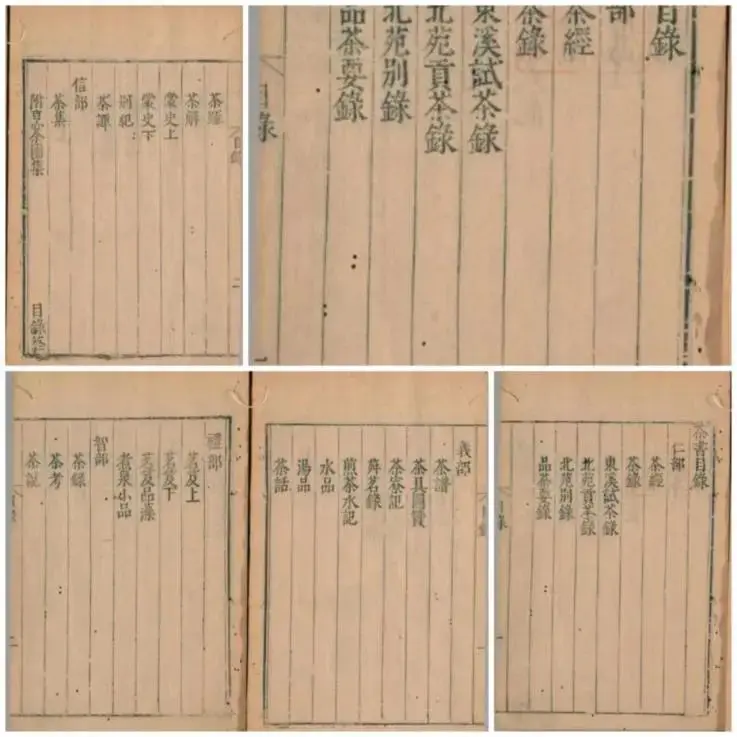 目錄
二
茶疏
茶解
蒙史上
蒙史下
別紀
茶譚
信部
茶集
附烹茶圖集
目錄終
目錄
部
茶經
茶錄
東溪試茶錄
北苑貢茶錄
北苑別錄
品茶要錄
目錄
一
禮部
茗笈上
茗笈下
茗笈品藻
煮泉小品
智部
茶錄
茶考
茶說
目錄
二
目錄
一
義部
茶譜
茶具圖贊
茶寮記
荈茗錄
煎茶水記
水品
湯品
茶話
茶書目錄
仁部
茶經
茶錄
東溪試茶錄
北苑貢茶錄
北苑別錄
品茶要錄
目錄
一